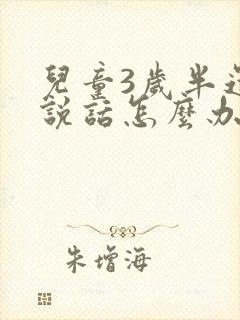 兒童3歲半還
說話怎麼办
朱增海